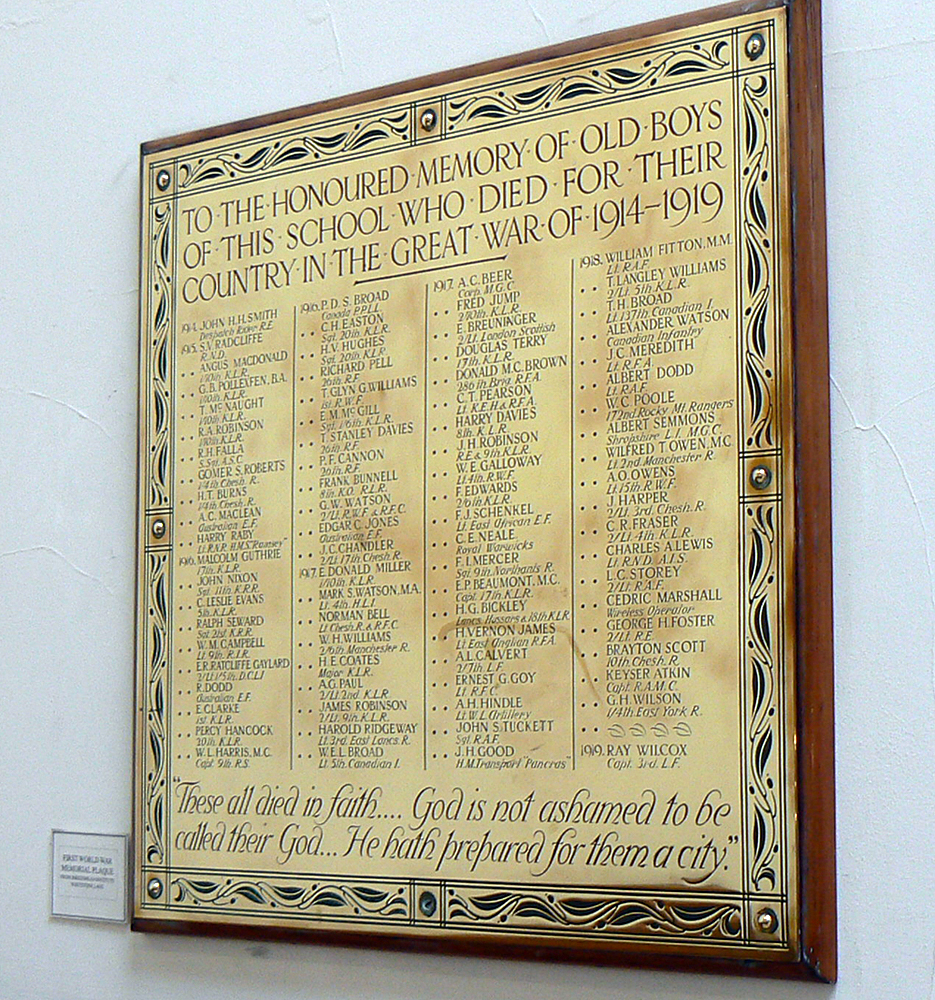 TO·THE·HONOURED·MEMORY·OF·OLD·BOYS
OF·THIS·SCHOOL·WHO·DIED·FOR·THEIR
COUNTRY·IN·THE·GREAT·WAR·OF·1914–1919
1914. JOHN H.H. SMITH
Despatch Rider R.E.
1915. S.V. RADCLIFFE
R.N.D.
" " ANGUS MACDONALD
1/10th. K.L.R.
" " G.B. POLLEXFEN, B.A.
1/10th. K.L.R.
" " T. McNAUGHT
1/10th. K.L.R.
" " R.A. ROBINSON
1/10th. K.L.R.
" " R.H. FALLA
S.Sgt. A.S.C.
" " GOMER S. ROBERTS
1/4th. Chesh. R.
" " H.T. BURNS
1/4th. Chesh. R.
" " A.C. MACLEAN
Australian E.F.
" " HARRY RABY
Lt. R.N.R. H.M.S. "Ramsey"
1916. MALCOLM GUTHRIE
17th. K.L.R.
" " JOHN NIXON
Sgt. 11th. K.R.R.
" " C. LESLIE EVANS
5th. K.L.R.
" " RALPH SEWARD
Sgt. 21st. K.R.R.
" " W. M. CAMPBELL
Lt. 9th. R.I.R.
" " E.R. RATCLIFFE GAYLARD
2/Lt. 1/5th. D.C.L.I.
" " R. DODD
Australian E.F.
" " E. CLARKE
1st. K.L.R.
" " PERCY HANCOCK
20th. K.L.R.
" " W. L. HARRIS, M.C.
Capt. 9th. R.S.
1916. P. D. S. BROAD
Canada P.P.L.I.
" " C.H. EASTON
Sgt. 20th. K.L.R.
" " H.V. HUGHES
Sgt. 20th. K.L.R.
" " RICHARD PELL
26th. R.F.
" " T. GLYN G. WILLIAMS
1st. R.W.F.
" " E. M. McGILL
Sgt. 1/6th. K.L.R.
" " T. STANLEY DAVIES
26th. R.F.
" " P. F. CANNON
26th. R.F.
" " FRANK BUNNELL
8th. K.O. R.L.R.
" " G.W. WATSON
2/Lt. R.W.F. & R.F.C.
" " EDGAR C. JONES
Australian E.F.
" " J.C. CHANDLER
2/Lt. 17th. Chesh. R.
1917. E. DONALD MILLER
1/10th. K.L.R.
" " MARK S. WATSON, M.A.
Lt. 4th. H.L.I.
" " NORMAN BELL
Lt. Chesh. R. & R.F.C.
" " W. H. WILLIAMS
2/6th. Manchester R.
" " H. E. COATES
Major K.L.R.
" " A.G. PAUL
2/Lt. 2nd. K.L.R.
" " JAMES ROBINSON
2/Lt. 9th. K.L.R.
" " HAROLD RIDGEWAY
Lt. 3rd. East Lancs. R.
" " W. E. L. BROAD
Lt. 5th. Canadian I.
1917. A.C. BEER
Corp. M.G.C.
" " FRED JUMP
2/10th. K.L.R.
" " E. BREUNINGER
2/Lt. London Scottish
" " DOUGLAS TERRY
17th. K.L.R.
" " DONALD M.C. BROWN
286th. Brig. R.F.A.
" " C. T. PEARSON
Lt. K.E.H. & R.F.A.
" " HARRY DAVIES
8th. K.L.R.
" " J.H. ROBINSON
R.E. & 9th. K.L.R.
" " W. E. GALLOWAY
Lt. 4th. R.W.F.
" " F. EDWARDS
2/6th. K.L.R.
" " F. J. SCHENKEL
Lt. East African E.F.
" " C. E. NEALE
Royal Warwicks
" " F. I. MERCER
Sgt. 9th. Northants R.
" " E.P. BEAUMONT, M.C.
Capt. 17th. K.L.R.
" " H. G. BICKLEY
Lancs. Hussars & 18th. K.L.R.
" " H. VERNON JAMES
Lt. East Anglian R.F.A.
" " A.L. CALVERT
2/7th. L.F.
" " ERNEST G. GOY
Lt. R.F.C.
" " A.H. HINDLE
Lt. W.L. Artillery
" " JOHN S. TUCKETT
Sgt. R.A.F.
" " J.H. GOOD
H.M. Transport "Pancras"
1918. WILLIAM FITTON, M.M.
Lt. R.A.F.
" " T. LANGLEY WILLIAMS
2/Lt. 5th. K.L.R.
" " T. H. BROAD
Lt. 137th. Canadian I.
" " ALEXANDER WATSON
Canadian Infantry
" " J.C. MEREDITH
Lt. R.F.A.
" " ALBERT DODD
Lt. R.A.F.
" " W.C. POOLE
172nd. Rocky Mt. Rangers
" " ALBERT SEMMONS
Shropshire L.I. M.G.C.
" " WILFRED T. OWEN, M.C
Lt. 2nd. Manchester R.
" " A.O. OWENS
Lt. 15th. R.W.F.
" " J. HARPER
2/Lt. 3rd. Chesh. R.
" " C. R. FRASER
2/Lt. 4th. K.L.R.
" " CHARLES A. LEWIS
Lt. R.N.D. A.I.S.
" " L.C. STOREY
2/Lt. R.A.F.
" " CEDRIC MARSHALL
Wireless Operator
" " GEORGE H. FOSTER
2/Lt. R.E.
" " BRAYTON SCOTT
10th. Chesh. R.
" " KEYSER ATKIN
Capt. R.A.M.C.
" " G.H. WILSON
1/4th. East York R.
1919. RAY WILCOX
Capt. 3rd. L.F.
"These all died in faith.... God is not ashamed to be
called their God... He hath prepared for them a city."
FIRST WORLD WAR
MEMORIAL PLAQUE